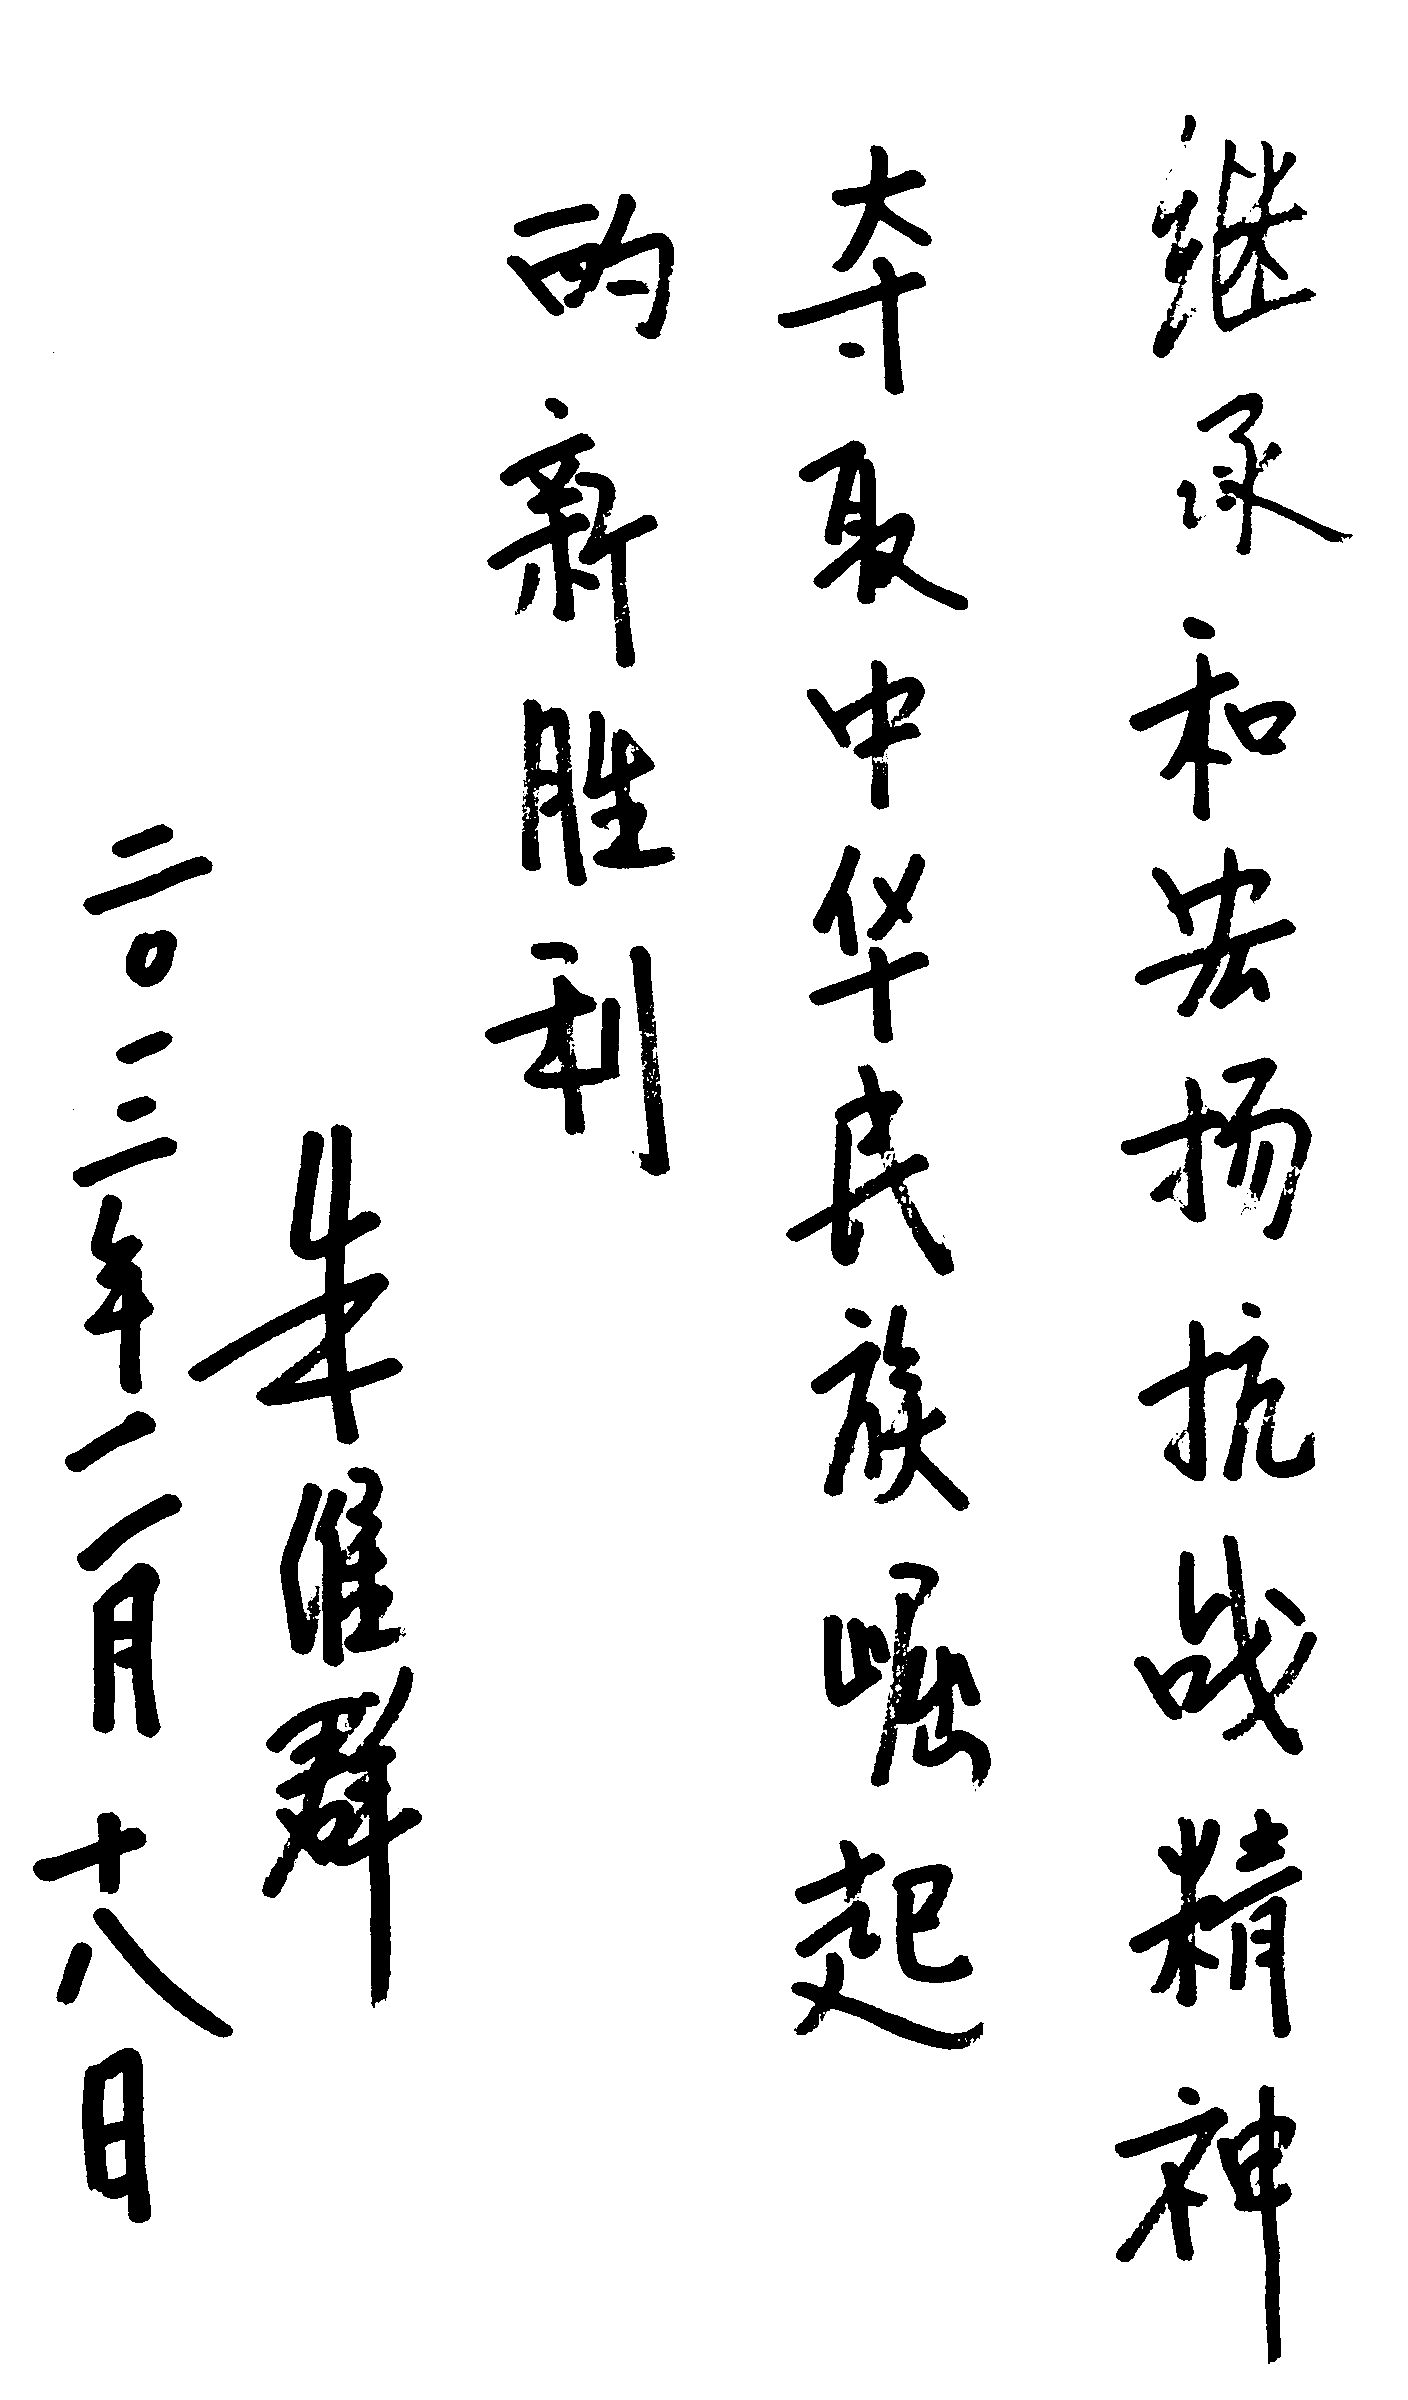 继承和宏扬抗战精神
夺取中华民族崛起
的新胜利
朱维群
二〇一二年二月十八日